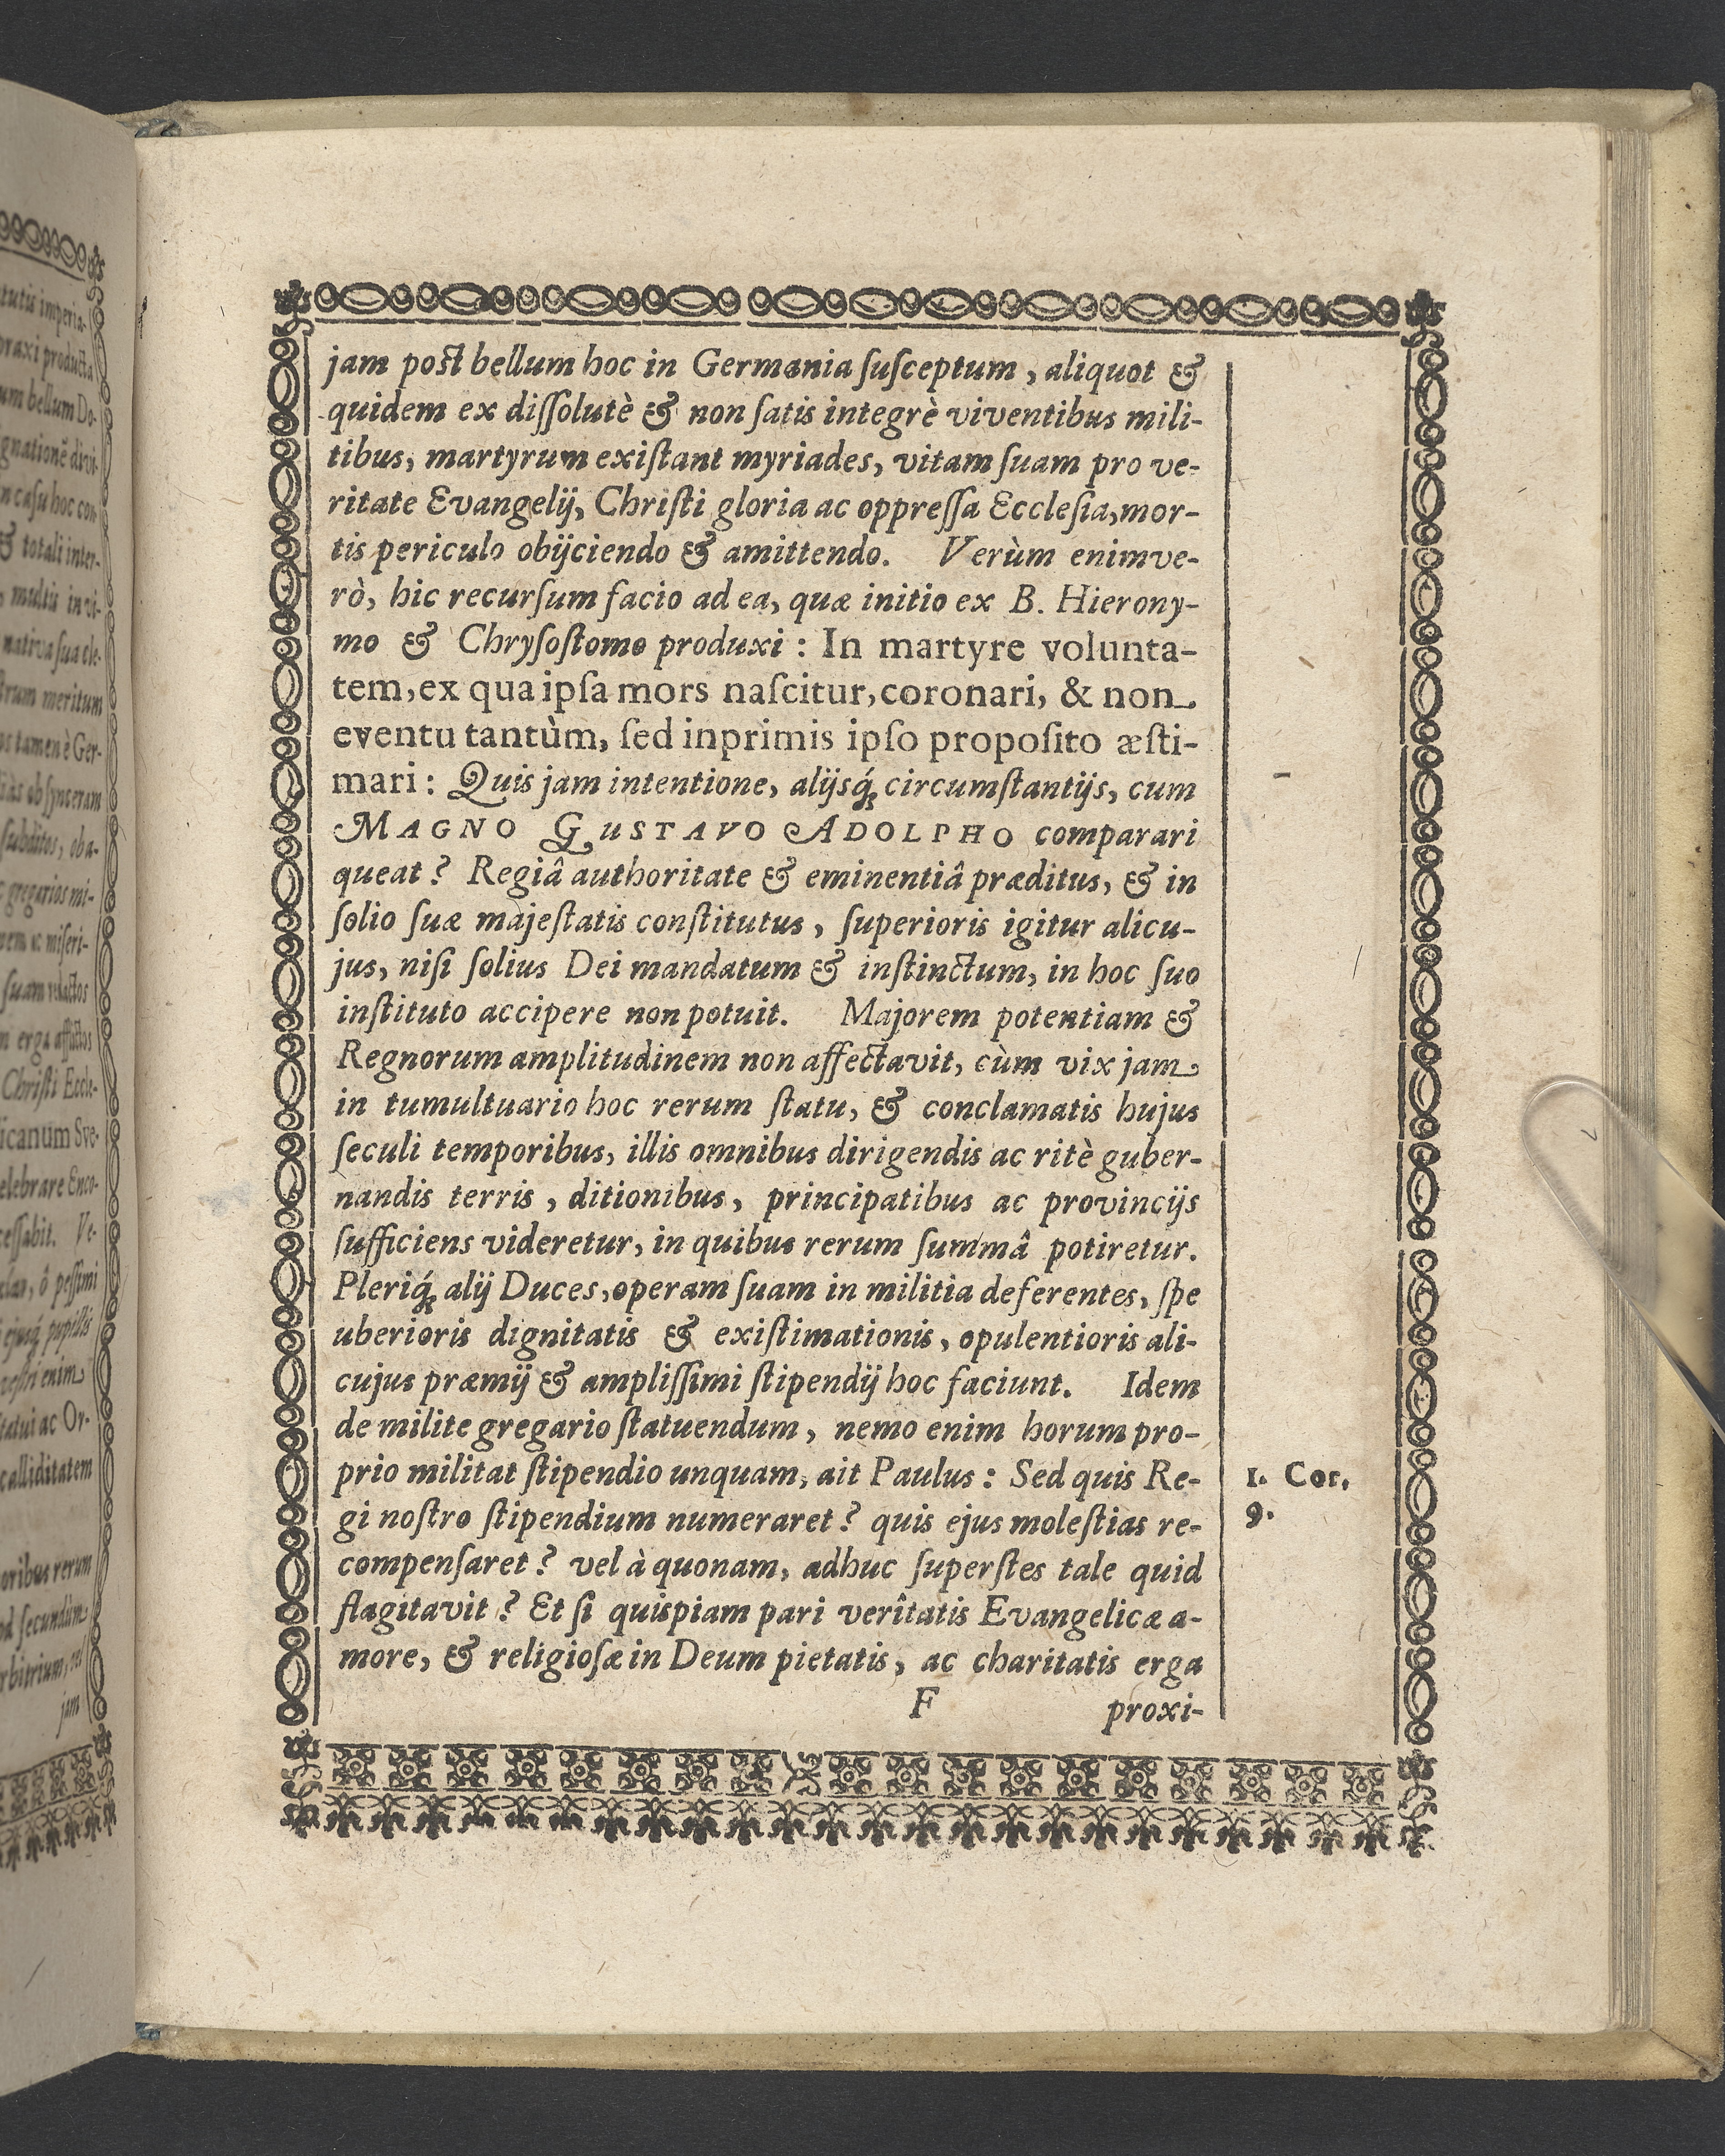 jam post bellum hoc in Germania ſuſceptum, aliquot &
quidem ex diſſolutè & non ſatis integrè viventibus mili-
tibus, martyrum exiſtant myriades, vitam ſuam pro ve-
ritate Evangelij, Chriſti gloria ac oppreſſa Eccleſia, mor-
tis periculo obijciendo & amittendo. Verùm enimve-
rò, hic recurſum facio ad ea, quæ initio ex B. Hierony-
mo & Chryſoſtomo produxi: In martyre volunta-
tem, ex qua ipſa mors naſcitur, coronari, & non
eventu tantùm, ſed inprimis ipſo propoſito æſti-
mari: Quis jam intentione, alijsq́; circumſtantijs, cum
MAGNO GUSTAVO ADOLPHO comparari
queat? Regiâ authoritate & eminentiâ præditus, & in
ſolio ſuæ majeſtatis conſtitutus, ſuperioris igitur alicu-
jus, niſi ſolius Dei mandatum & inſtinctum, in hoc ſuo
inſtituto accipere non potuit. Majorem potentiam &
Regnorum amplitudinem non affectavit, cùm vix jam
in tumultuario hoc rerum ſtatu, & conclamatis hujus
ſeculi temporibus, illis omnibus dirigendis ac ritè guber-
nandis terris, ditionibus, principatibus ac provincijs
ſufficiens videretur, in quibus rerum ſummâ potiretur.
Pleriq́; alij Duces, operam ſuam in militia deferentes, ſpe
uberioris dignitatis & exiſtimationis, opulentioris ali-
cujus præmij & ampliſſimi ſtipendij hoc faciunt. Idem
de milite gregario ſtatuendum, nemo enim horum pro-
prio militat ſtipendio unquam, ait Paulus: Sed quis Re-
gi noſtro ſtipendium numeraret? quis ejus moleſtias re-
compenſaret? vel à quonam, adhuc ſuperſtes tale quid
flagitavit? Et ſi quiſpiam pari verîtatis Evangelicæ a-
more, & religioſæ in Deum pietatis, ac charitatis erga
F proxi-
1. Cor.
9.